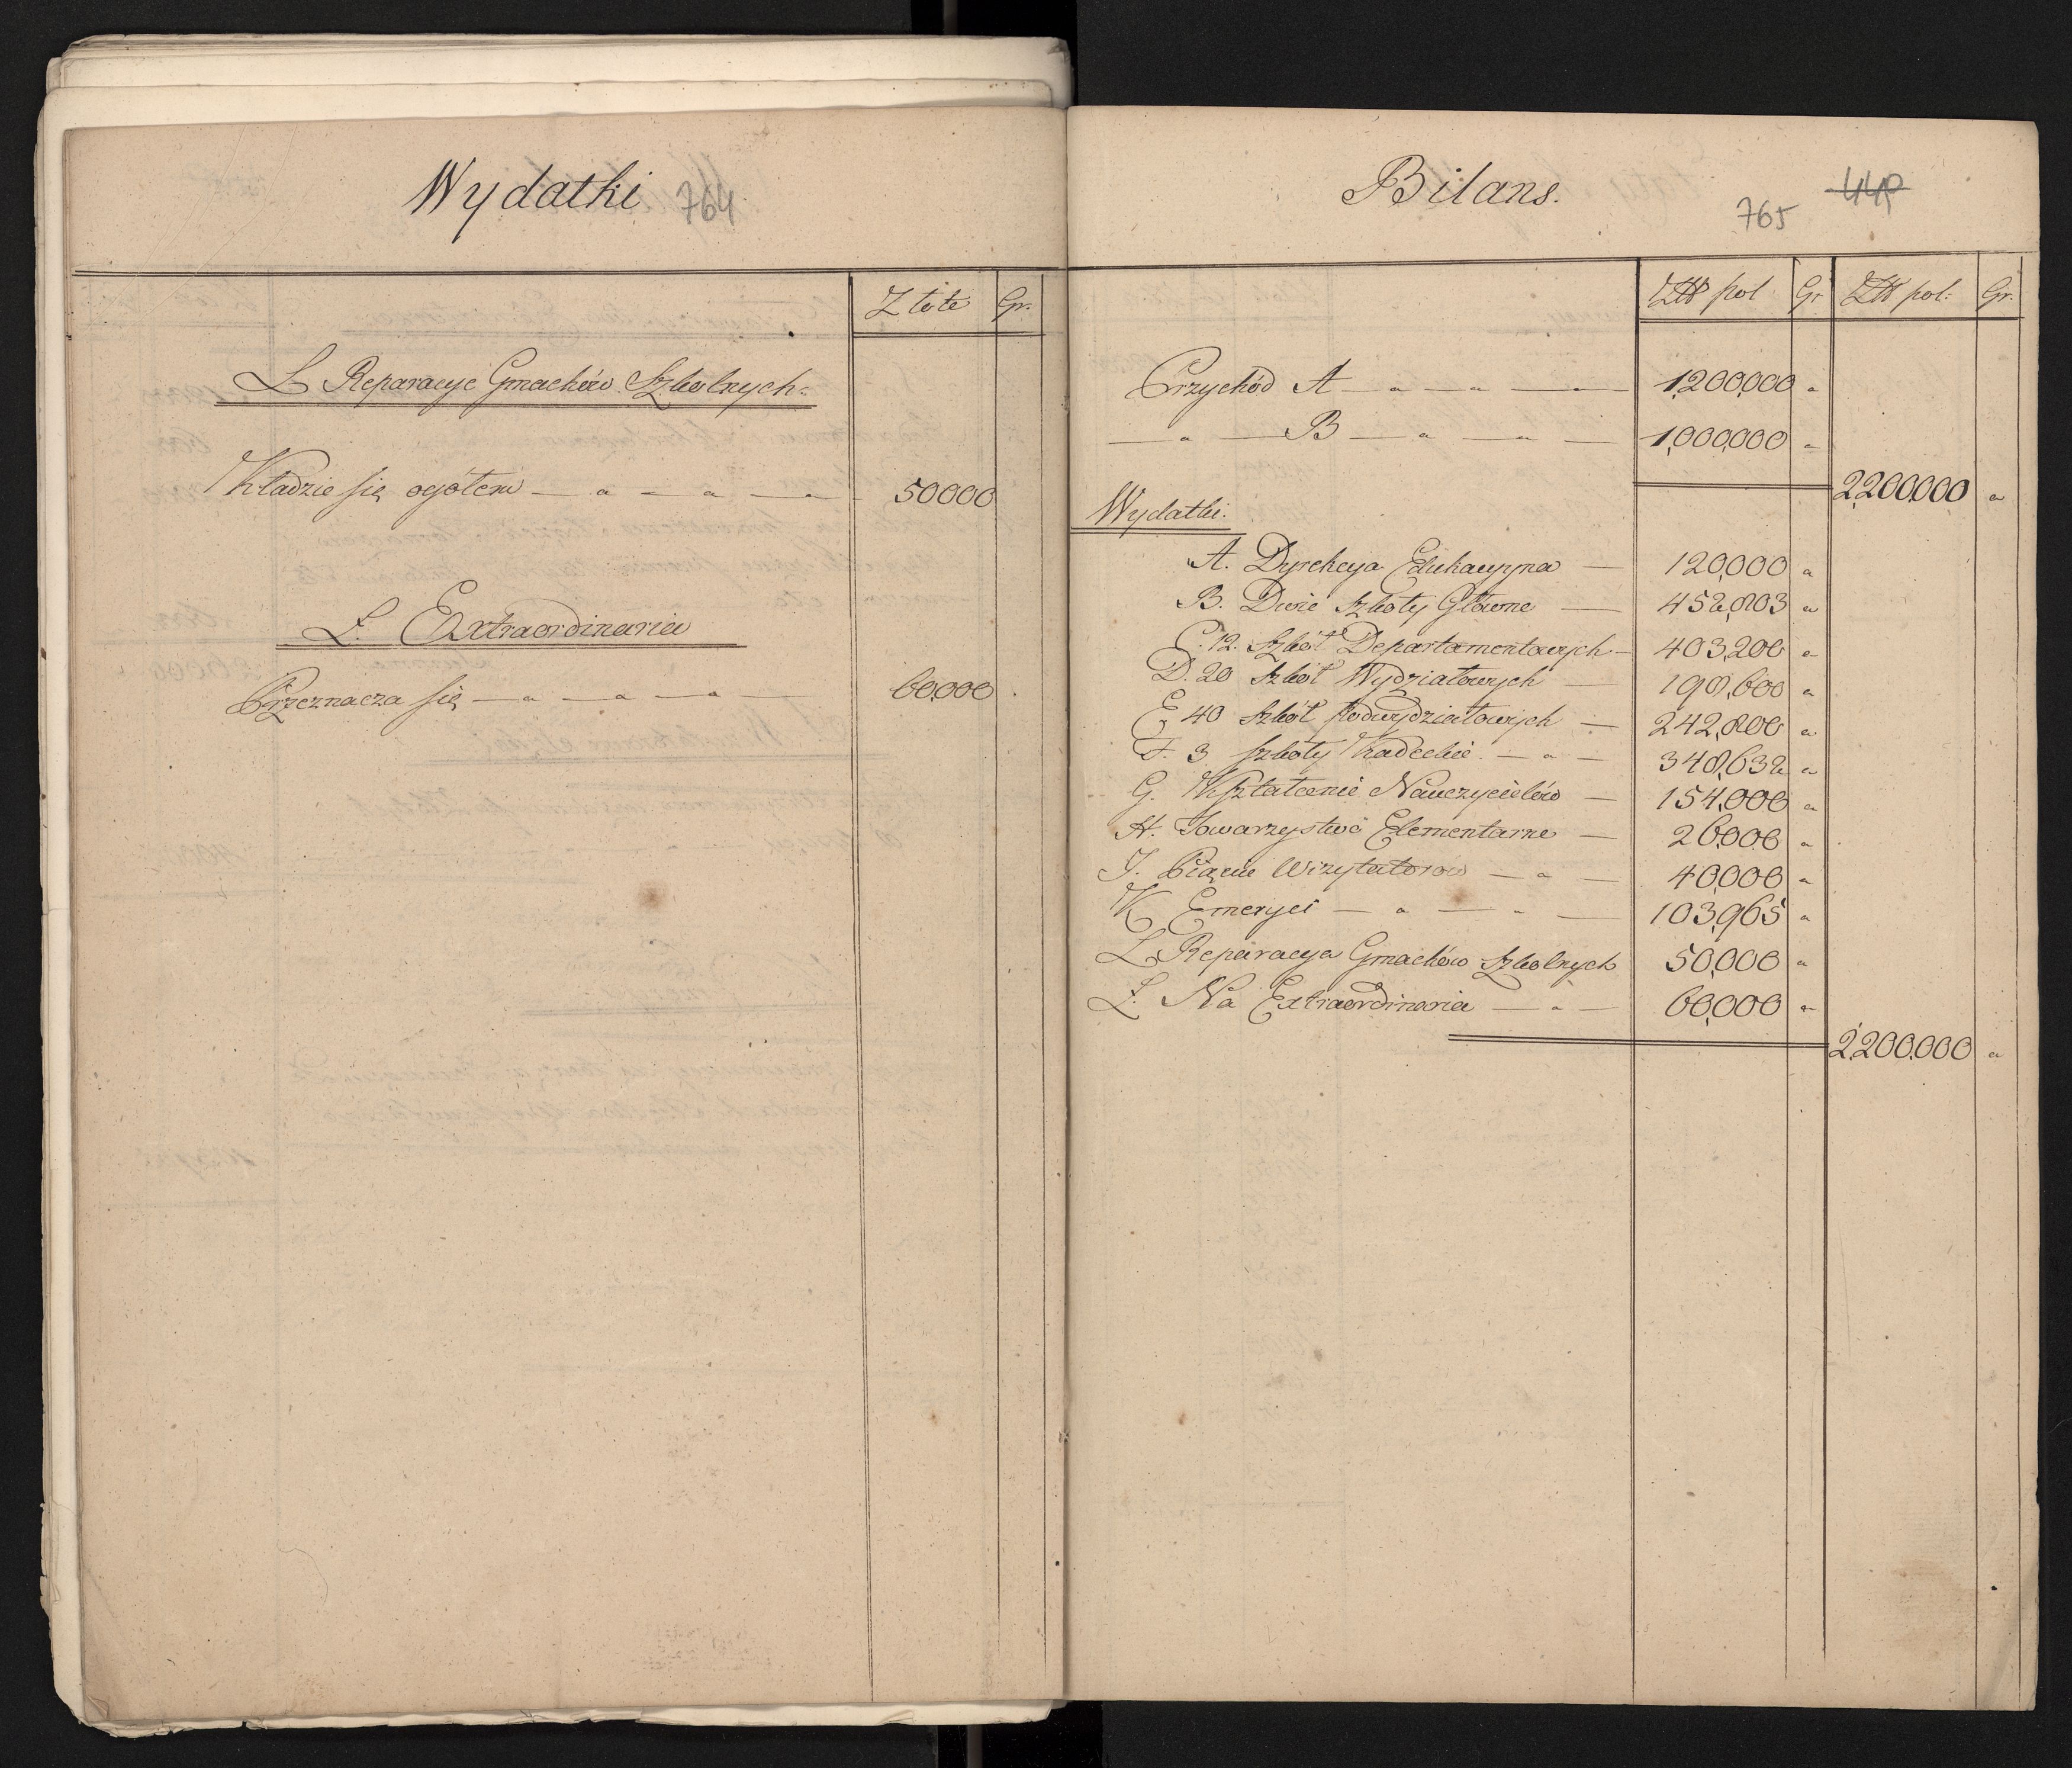 Wydatki 764
Złote Gr.
L Reparacye Gmachów Szkolnych.
Kładzie się ogółem — „ — „ — „ — 50000
Ł. Extraordinaria
Przeznacza się — „ — „ — „ — 60,000
Bilans.
765 449
Złł pol Gr Złł pol: Gr.
Przychód A — „ — „ — „ — 1,200,000 „
— „ — B — „ — „ — 1,000,000 „
2,200,000 „
Wydatki.
A. Dyrekcya Edukacyyna — 120,000 „
B. Dwie Szkoły Główne — 452,803 „
C. 12. Szkół Departamentowych — 403,200 „
D. 20 Szkół Wydziałowych — 198,600 „
E 40 Szkół Podwydziałowych — 242,800 „
F. 3 Szkoły Kadeckie. — „ — 348,632 „
G. Kształcenie Nauczycielów — 154,000 „
H. Towarzystwo Elementarne — 26,000 „
I. Pięciu Wizytatorów — „ — 40,000 „
K Emeryci — „ — „ — 103,965 „
L Reparacya Gmachów Szkolnych 50,000 „
Ł. Na Extraordinaria — „ — 60,000 „
2,200,000 „